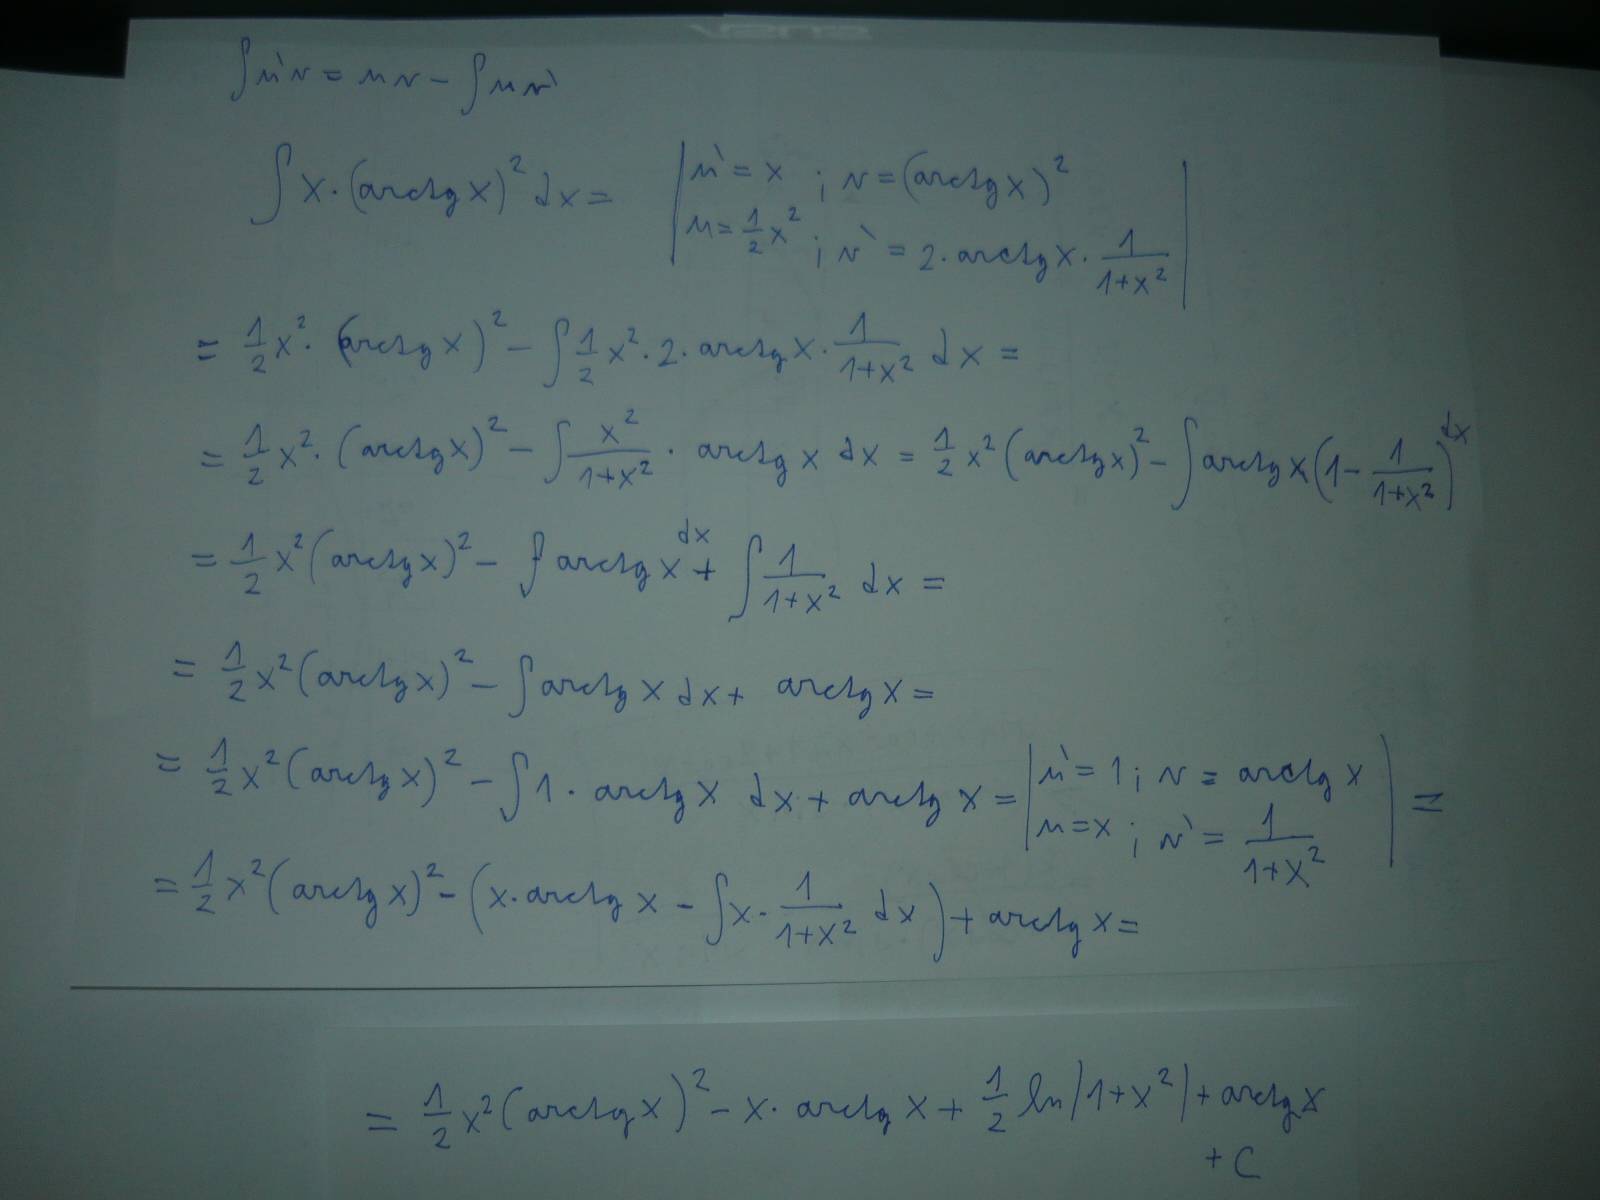 ∫u`v = uv - ∫uv`
∫ x·(arctg x)² dx = | u` = x ; v = (arctg x)²
u = 1/2 x² ; v` = 2·arctg x · 1/(1+x²) |
= 1/2 x² · (arctg x)² - ∫ 1/2 x² · 2 · arctg x · 1/(1+x²) dx =
= 1/2 x² · (arctg x)² - ∫ x²/(1+x²) · arctg x dx = 1/2 x² (arctg x)² - ∫ arctg x (1 - 1/(1+x²)) dx
= 1/2 x² (arctg x)² - ∫ arctg x dx + ∫ 1/(1+x²) dx =
= 1/2 x² (arctg x)² - ∫ arctg x dx + arctg x =
= 1/2 x² (arctg x)² - ∫ 1 · arctg x dx + arctg x = | u` = 1 ; v = arctg x
u = x ; v` = 1/(1+x²) | =
= 1/2 x² (arctg x)² - (x · arctg x - ∫ x · 1/(1+x²) dx) + arctg x =
= 1/2 x² (arctg x)² - x · arctg x + 1/2 ln|1+x²| + arctg x
+ C